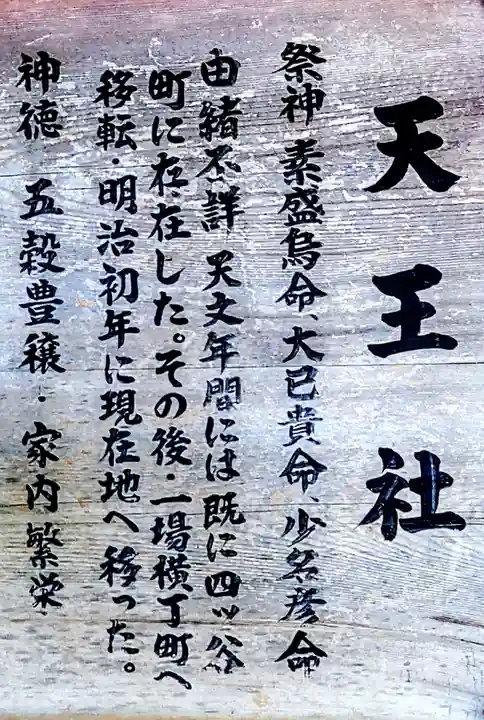 天王社
祭神 素盛烏命、大已貴命、少名彦命
由緒不詳 天文年間には既に四ッ谷
町に存在した。その後・一場横丁町へ
移転・明治初年に現在地へ移った。
神徳 五穀豊穣・家内繁栄